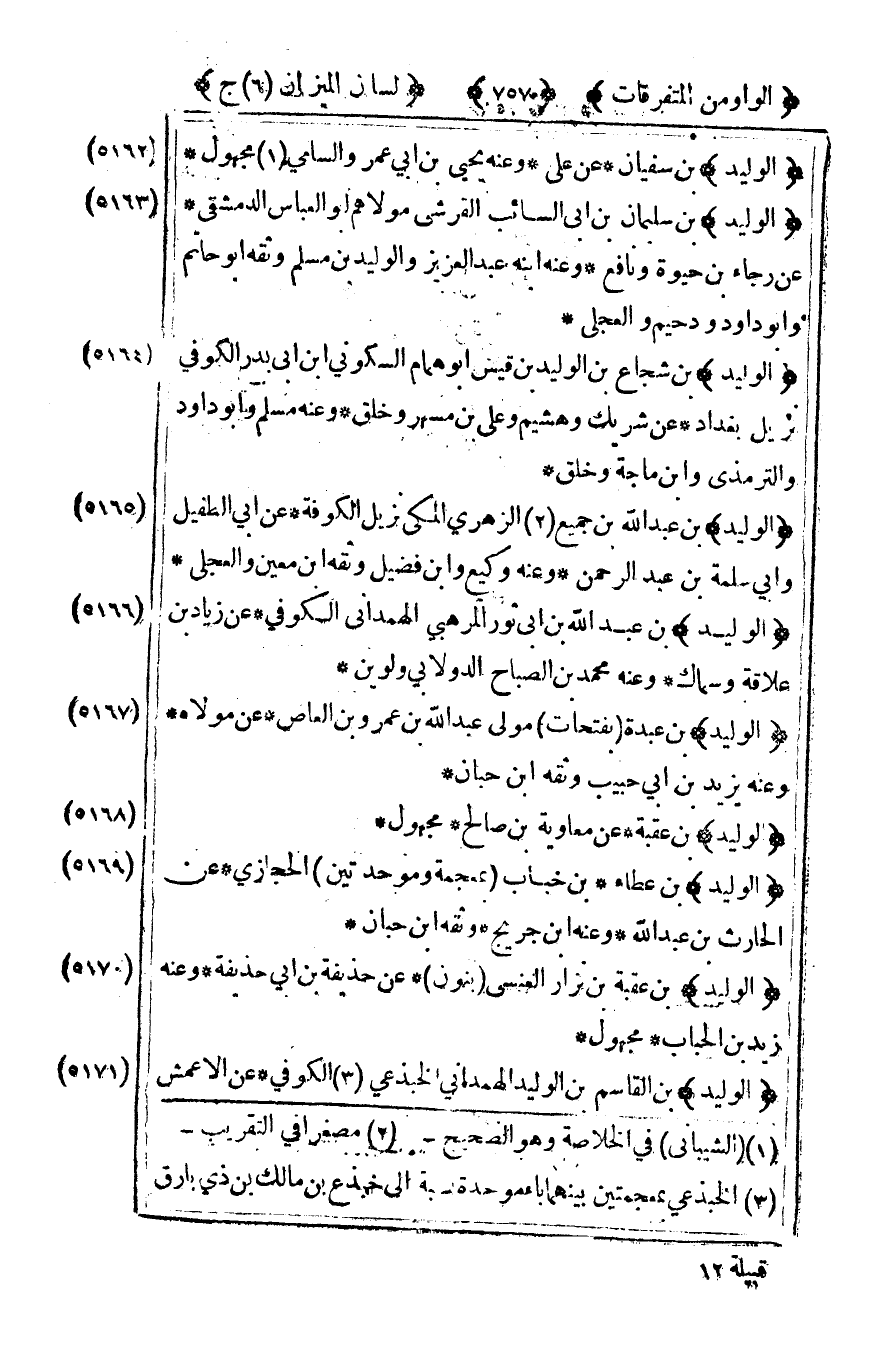 ﴿ الواو من المتفرقات ﴾ ﴿٧٥٧﴾ ﴿ لسان الميزان (٦) ج ﴾
﴿ الوليد ﴾ بن سفيان * عن على * وعنه يحيى بن ابي عمر والسامي (١) مجهول * (٥١٦٢)
﴿ الوليد ﴾ بن سليمان بن ابى السائب القرشى مولاهم ابو العباس الدمشقى * (٥١٦٣)
عن رجاء بن حيوة ونافع * وعنه ابنه عبدالعزيز والوليد بن مسلم وثقه ابو حاتم
وابو داود ودحيم و العجلى *
﴿ الوليد ﴾ بن شجاع بن الوليد بن قيس ابو همام السكوني ابن ابى بدر الكوفي (٥١٦٤)
نزيل بغداد * عن شريك وهشيم وعلى بن مسهر وخلق * وعنه مسلم وابو داود
والترمذى وابن ماجة وخلق *
﴿ الوليد ﴾ بن عبدالله بن جميع (٢) الزهري المكى نزيل الكوفة * عن ابي الطفيل (٥١٦٥)
وابي سلمة بن عبد الرحمن * وعنه وكيع وابن فضيل وثقه ابن معين والعجلى *
﴿ الوليد ﴾ بن عبد الله بن ابى ثور المرهبي الهمدانى الكوفي * عن زياد بن (٥١٦٦)
علاقة وسماك * وعنه محمد بن الصباح الدولابي ولوين *
﴿ الوليد ﴾ بن عبدة (بفتحات) مولى عبدالله بن عمرو بن العاص * عن مولاه * (٥١٦٧)
وعنه يزيد بن ابي حبيب وثقه ابن حبان *
﴿ الوليد ﴾ بن عقبة * عن معاوية بن صالح * مجهول * (٥١٦٨)
﴿ الوليد ﴾ بن عطاء * بن خباب (بمعجمة وموحدتين) الحجازي * عن (٥١٦٩)
الحارث بن عبدالله * وعنه ابن جريج * وثقه ابن حبان *
﴿ الوليد ﴾ بن عقبة بن نزار العنسى (بنون) * عن حذيفة بن ابي حذيفة * وعنه (٥١٧٠)
زيد بن الحباب * مجهول *
﴿ الوليد ﴾ بن القاسم بن الوليد الهمداني الخبذعي (٣) الكوفي * عن الاعمش (٥١٧١)
(١) (الشيبانى) في الخلاصة وهو الصحيح – (٢) مصغرا في التقريب –
(٣) الخبذعي بمعجمتين بينهما باء موحدة نسبة الى خبذع بن مالك بن ذي بارق
قبيلة ١٢